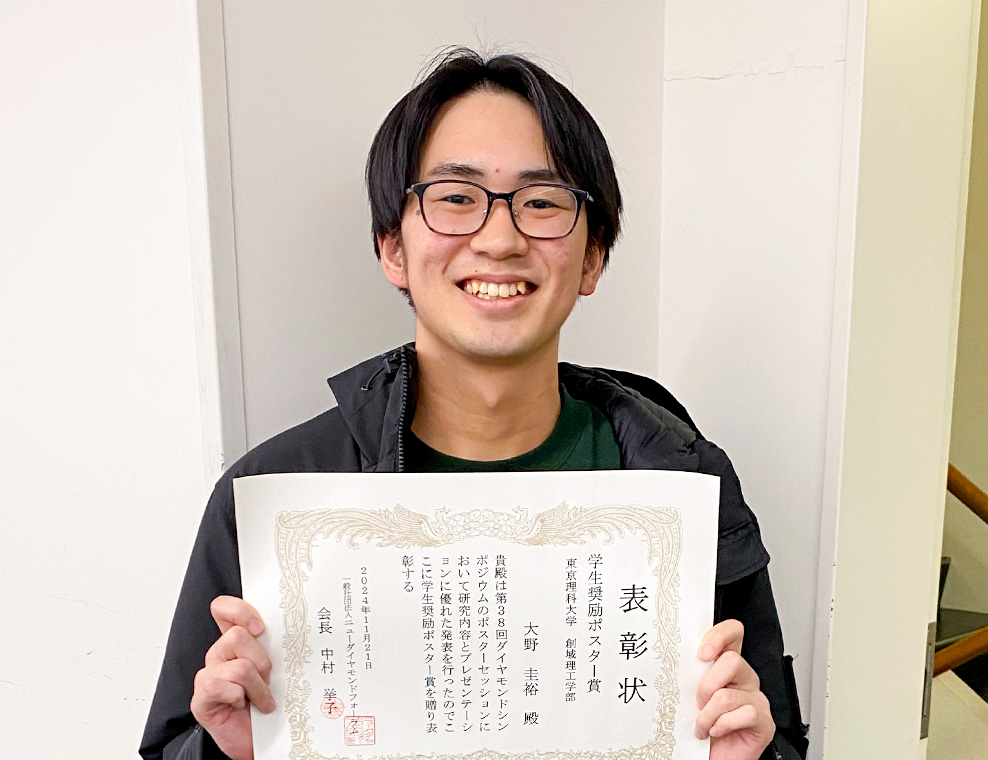 表彰状
学生奨励ポスター賞
東京理科大学 創域理工学部
大野 圭裕 殿
貴殿は第38回ダイヤモンドシン
ポジウムのポスターセッションに
おいて研究内容とプレゼンテーシ
ョンに優れた発表を行ったのでこ
こに学生奨励ポスター賞を贈り表
彰する
2024年11月21日
一般社団法人ニューダイヤモンドフォーラム
会長 中村 挙子